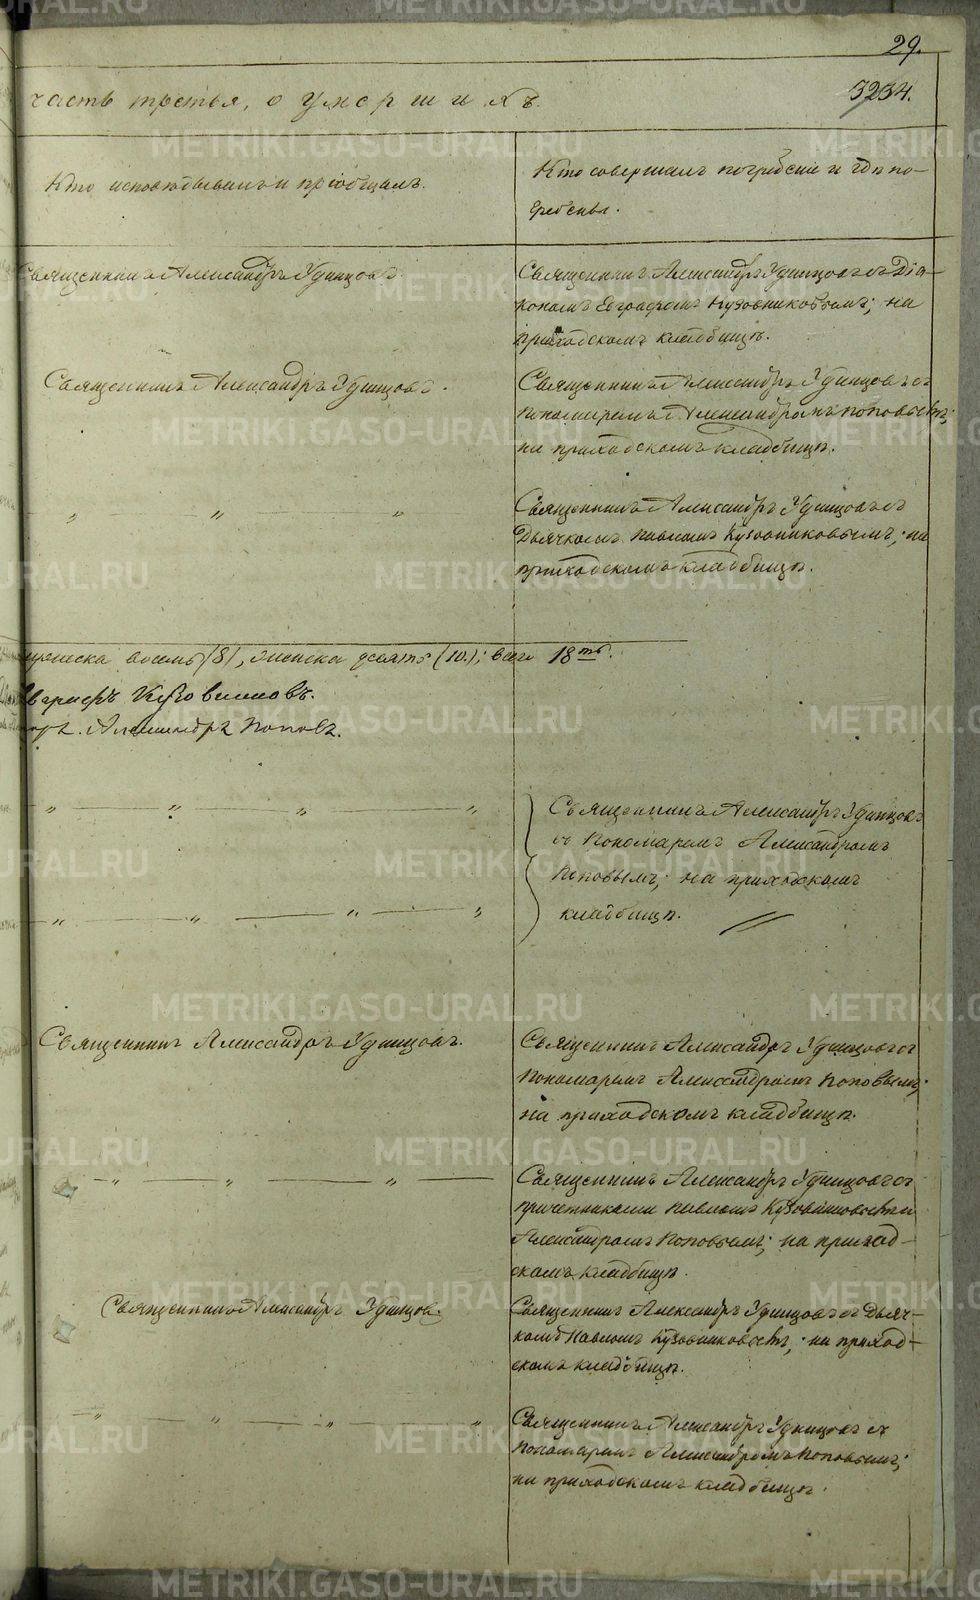 29.
3234.
часть третья, о умершихъ.
Кто исповѣдывалъ и пріобщалъ.
Кто совершалъ погребеніе и гдѣ по-
гребены.
Священникъ Александръ Удинцовъ.
Священникъ Александръ Удинцовъ съ Діа-
кономъ Евграфомъ Кузовниковымъ; на
приходскомъ кладбищѣ.
Священникъ Александръ Удинцовъ.
Священникъ Александръ Удинцовъ съ
пономаремъ Александромъ Поповымъ;
на приходскомъ кладбищѣ.
„ — „ — „
Священникъ Александръ Удинцовъ съ
Дьячкомъ Павломъ Кузовниковымъ; на
приходскомъ кладбищѣ.
мужеска восемь (8), женска десять (10.); всего 18ть.
Евграфъ Кузовниковъ.
Александръ Поповъ.
„ — „ — „ — „
Священникъ Александръ Удинцовъ
съ Пономаремъ Александромъ
Поповымъ; на приходскомъ
кладбищѣ.
„ — „ — „ — „
Священникъ Александръ Удинцовъ.
Священникъ Александръ Удинцовъ съ
Пономаремъ Александромъ Поповымъ;
на приходскомъ кладбищѣ.
„ — „ — „
Священникъ Александръ Удинцовъ съ
причетниками Павломъ Кузовниковымъ и
Александромъ Поповымъ; на приход-
скомъ кладбищѣ.
Священникъ Александръ Удинцовъ.
Священникъ Александръ Удинцовъ съ Дьяч-
комъ Павломъ Кузовниковымъ; на приход-
скомъ кладбищѣ.
„ — „ — „ — „
Священникъ Александръ Удинцовъ съ
Пономаремъ Александромъ Поповымъ;
на приходскомъ кладбищѣ.
METRIKI.GASO-URAL.RU